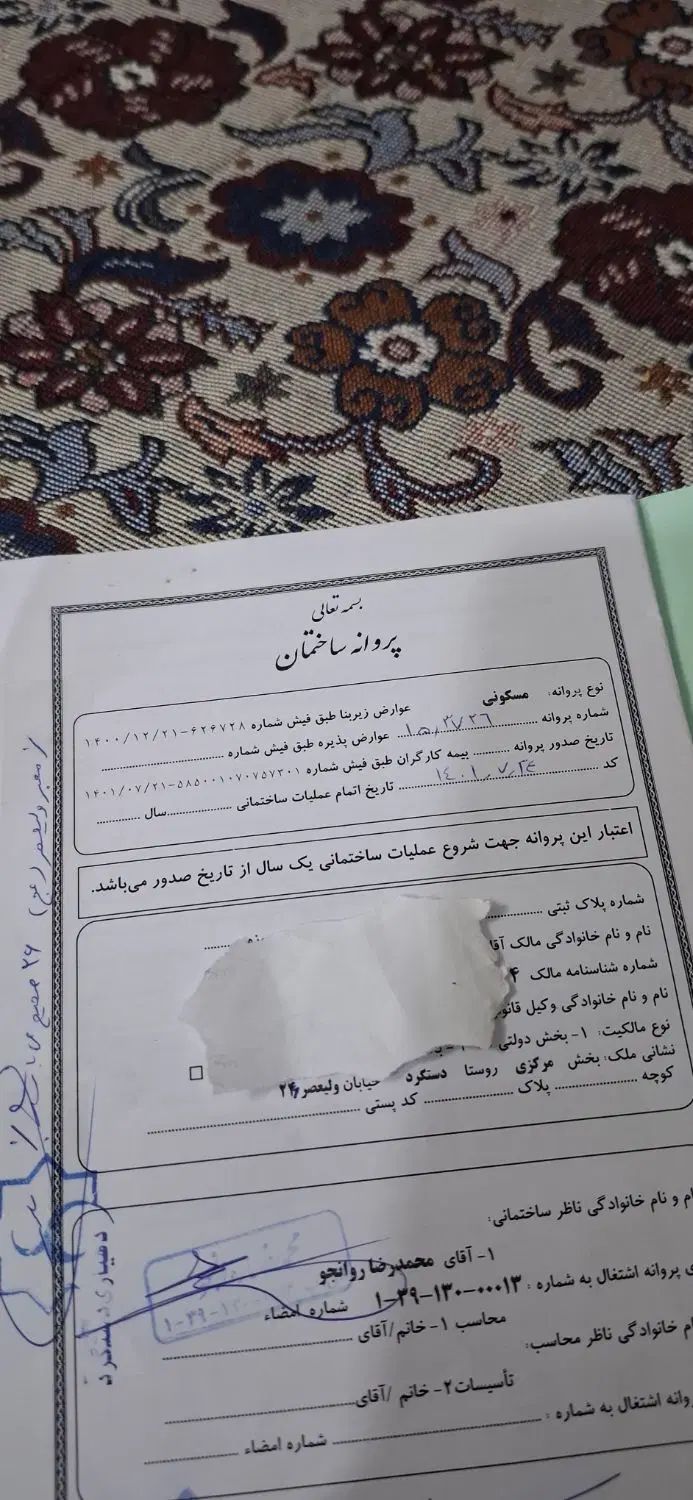 بسمه تعالی
پروانه ساختمان
نوع پروانه: مسکونی عوارض زیربنا طبق فیش شماره ۶۲۶۷۲۸-۱۴۰۰/۱۲/۲۱
شماره پروانه ........ عوارض پذیره طبق فیش شماره ........
تاریخ صدور پروانه ........ بیمه کارگران طبق فیش شماره ۵۸۵۰۰۱۰۷۰۷۵۷۳۰۱-۱۴۰۱/۰۷/۲۱
کد ........ ۱۴۰۱/۷/۲۴ تاریخ اتمام عملیات ساختمانی ........ سال ........
اعتبار این پروانه جهت شروع عملیات ساختمانی یک سال از تاریخ صدور می‌باشد.
شماره پلاک ثبتی ........
نام و نام خانوادگی مالک آقا
شماره شناسنامه مالک ۴
نام و نام خانوادگی وکیل قانو
نوع مالکیت: ۱- بخش دولتی
نشانی ملک: بخش مرکزی روستا دستگرد خیابان ولیعصر ۲۴
کوچه ........ پلاک ........ کد پستی ........
م و نام خانوادگی ناظر ساختمانی:
۱- آقای محمدرضا روانجو
ی پروانه اشتغال به شماره : ۱-۳۹-۱۳۰-۰۰۰۱۳ شماره امضاء
م خانوادگی ناظر محاسب: محاسب ۱- خانم/آقای ........
تأسیسات ۲- خانم /آقای ........
وانه اشتغال به شماره : ........ شماره امضاء ........
دهیاری دستگرد